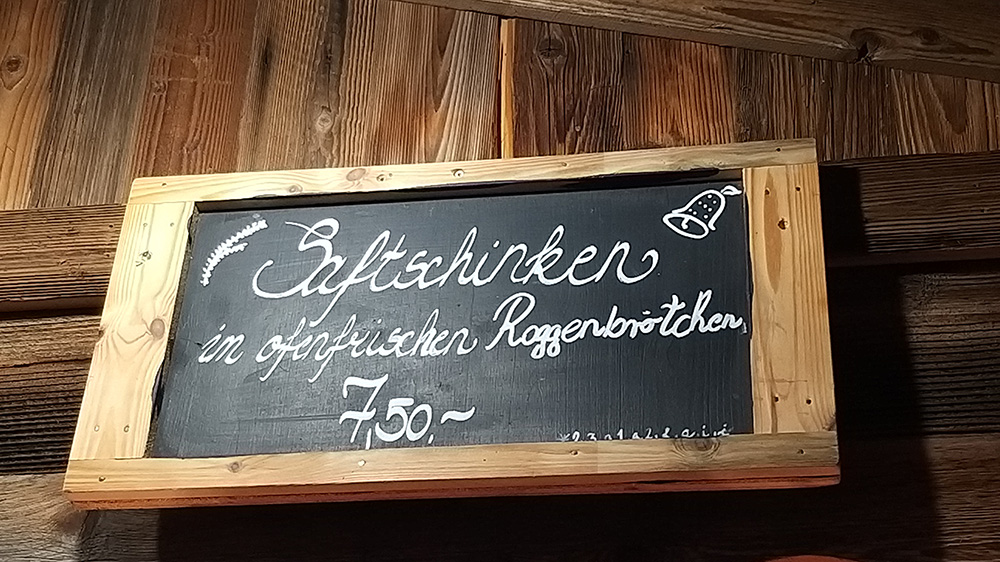 Saftschinken
in ofenfrischen Roggenbrötchen
7,50,-